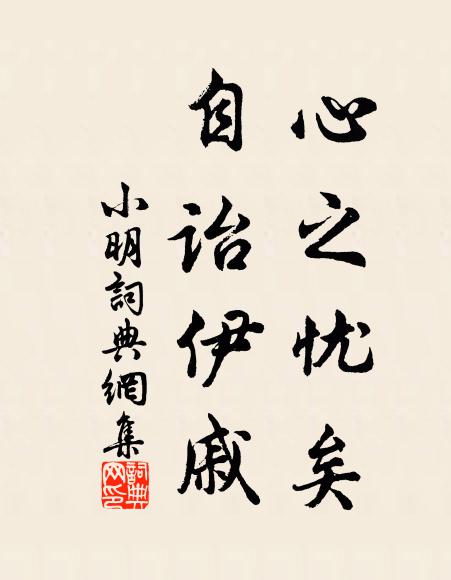 心之忧矣
自诒伊戚
小明詞典網集
詞典网印